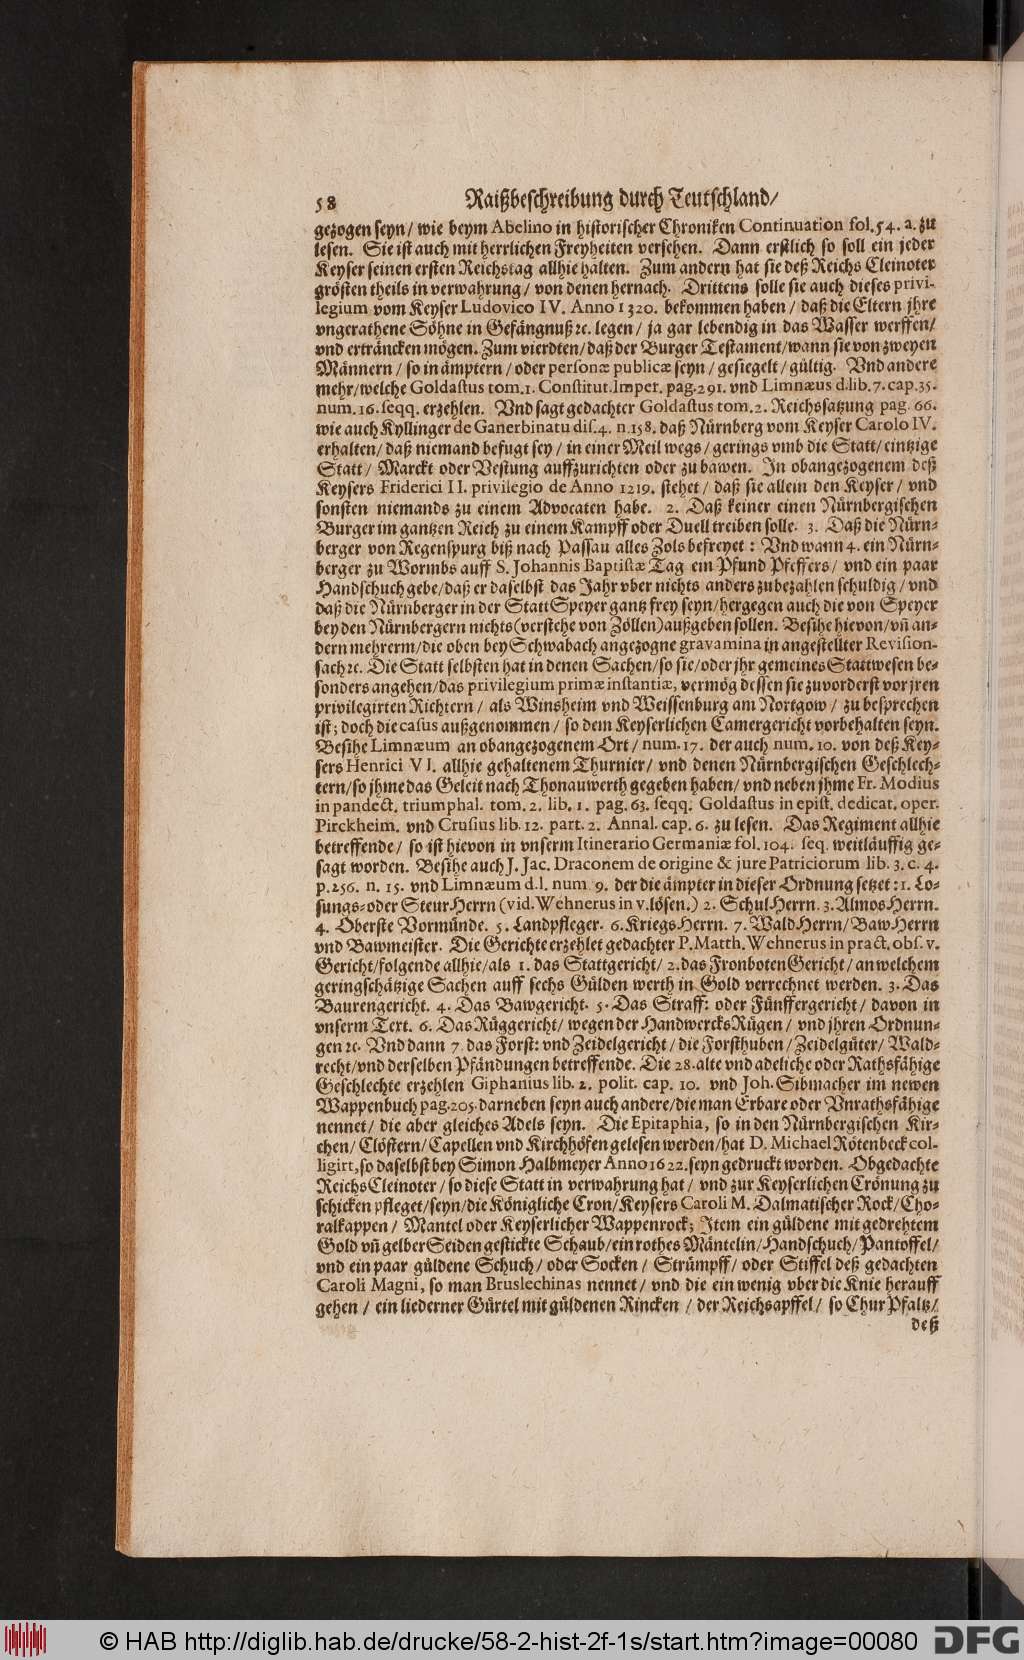 58 Raißbeschreibung durch Teutschland/
gezogen seyn/ wie beym Abelino in historischer Chroniken Continuation fol. 54. a. zu
lesen. Sie ist auch mit herrlichen Freyheiten versehen. Dann erstlich so soll ein jeder
Keyser seinen ersten Reichstag allhie halten. Zum andern hat sie deß Reichs Cleinoter
grösten theils in verwahrung/ von denen hernach. Drittens solle sie auch dieses privi-
legium vom Keyser Ludovico IV. Anno 1320. bekommen haben/ daß die Eltern jhre
vngerathene Söhne in Gefängnuß ꝛc. legen/ ja gar lebendig in das Wasser werffen/
vnd erträncken mögen. Zum vierdten/ daß der Burger Testament/ wann sie von zweyen
Männern/ so in ämptern/ oder personæ publicæ seyn/ gesiegelt/ gültig. Vnd andere
mehr/ welche Goldastus tom. 1. Constitut. Imper. pag. 291. vnd Limnæus d. lib. 7. cap. 35.
num. 16. seqq. erzehlen. Vnd sagt gedachter Goldastus tom. 2. Reichssatzung pag. 66.
wie auch Kyllinger de Ganerbinatu dis. 4. n. 158. daß Nürnberg vom Keyser Carolo IV.
erhalten/ daß niemand befugt sey/ in einer Meil wegs/ gerings vmb die Statt/ eintzige
Statt/ Marckt oder Vestung auffzurichten oder zu bawen. In obangezogenem deß
Keysers Friderici II. privilegio de Anno 1219. stehet/ daß sie allein den Keyser/ vnd
sonsten niemands zu einem Advocaten habe. 2. Daß keiner einen Nürnbergischen
Burger im gantzen Reich zu einem Kampff oder Duell treiben solle. 3. Daß die Nürn-
berger von Regenspurg biß nach Passau alles Zols befreyet: Vnd wann 4. ein Nürn-
berger zu Wormbs auff S. Johannis Baptistæ Tag ein Pfund Pfeffers/ vnd ein paar
Handschuch gebe/ daß er daselbst das Jahr vber nichts anders zubezahlen schuldig/ vnd
daß die Nürnberger in der Statt Speyer gantz frey seyn/ hergegen auch die von Speyer
bey den Nürnbergern nichts (verstehe von Zöllen) außgeben sollen. Besihe hievon/ vñ an-
dern mehrerm/ die oben bey Schwabach angezogne gravamina in angestellter Revision-
sach ꝛc. Die Statt selbsten hat in denen Sachen/ so sie/ oder jhr gemeines Stattwesen be-
sonders angehen/ das privilegium primæ instantiæ, vermög dessen sie zuvorderst vor jren
privilegirten Richtern/ als Winsheim vnd Weissenburg am Nortgow/ zu besprechen
ist; doch die casus außgenommen/ so dem Keyserlichen Camergericht vorbehalten seyn.
Besihe Limnæum an obangezogenem Ort/ num. 17. der auch num. 10. von deß Key-
sers Henrici VI. allhie gehaltenem Thurnier/ vnd denen Nürnbergischen Geschlech-
tern/ so jhme das Geleit nach Thonauwerth gegeben haben/ vnd neben jhme Fr. Modius
in pandect. triumphal. tom. 2. lib. 1. pag. 63. seqq. Goldastus in epist. dedicat. oper.
Pirckheim. vnd Crusius lib. 12. part. 2. Annal. cap. 6. zu lesen. Das Regiment allhie
betreffende/ so ist hievon in vnserm Itinerario Germaniæ fol. 104. seq. weitläuffig ge-
sagt worden. Besihe auch J. Jac. Draconem de origine & jure Patriciorum lib. 3. c. 4.
p. 256. n. 15. vnd Limnæum d. l. num 9. der die ämpter in dieser Ordnung setzet: 1. Lo-
sungs- oder Steur Herrn (vid. Wehnerus in v. lösen.) 2. Schul Herrn. 3. Almos Herrn.
4. Oberste Vormünde. 5. Landpfleger. 6. Kriegs Herrn. 7. Wald Herrn/ Baw Herrn
vnd Bawmeister. Die Gerichte erzehlet gedachter P. Matth. Wehnerus in pract. obs. v.
Gericht/ folgende allhie/ als 1. das Stattgericht/ 2. das Fronboten Gericht/ an welchem
geringschätzige Sachen auff sechs Gülden werth in Gold verrechnet werden. 3. Das
Baurengericht. 4. Das Bawgericht. 5. Das Straff: oder Fünffergericht/ davon in
vnserm Text. 6. Das Rüggericht/ wegen der Handwercks Rügen/ vnd jhren Ordnun-
gen ꝛc. Vnd dann 7. das Forst: vnd Zeidelgericht/ die Forsthuben/ Zeidelgüter/ Wald-
recht/ vnd derselben Pfändungen betreffende. Die 28. alte vnd adeliche oder Rathsfähige
Geschlechte erzehlen Giphanius lib. 2. polit. cap. 10. vnd Joh. Sibmacher im newen
Wappenbuch pag. 205. darneben seyn auch andere/ die man Erbare oder Vnrathsfähige
nennet/ die aber gleiches Adels seyn. Die Epitaphia, so in den Nürnbergischen Kir-
chen/ Clöstern/ Capellen vnd Kirchhöfen gelesen werden/ hat D. Michael Rötenbeck col-
ligirt, so daselbst bey Simon Halbmeyer Anno 1622. seyn gedruckt worden. Obgedachte
Reichs Cleinoter/ so diese Statt in verwahrung hat/ vnd zur Keyserlichen Crönung zu
schicken pfleget/ seyn/ die Königliche Cron/ Keysers Caroli M. Dalmatischer Rock/ Cho-
ralkappen/ Mantel oder Keyserlicher Wappenrock; Item ein güldene mit gedrehtem
Gold vñ gelber Seiden gestickte Schaub/ ein rothes Mäntelin/ Handschuch/ Pantoffel/
vnd ein paar güldene Schuch/ oder Socken/ Strümpff/ oder Stiffel deß gedachten
Caroli Magni, so man Bruslechinas nennet/ vnd die ein wenig vber die Knie herauff
gehen/ ein liederner Gürtel mit güldenen Rincken/ der Reichsapffel/ so Chur Pfaltz/
deß
© HAB http://diglib.hab.de/drucke/58-2-hist-2f-1s/start.htm?image=00080 DFG